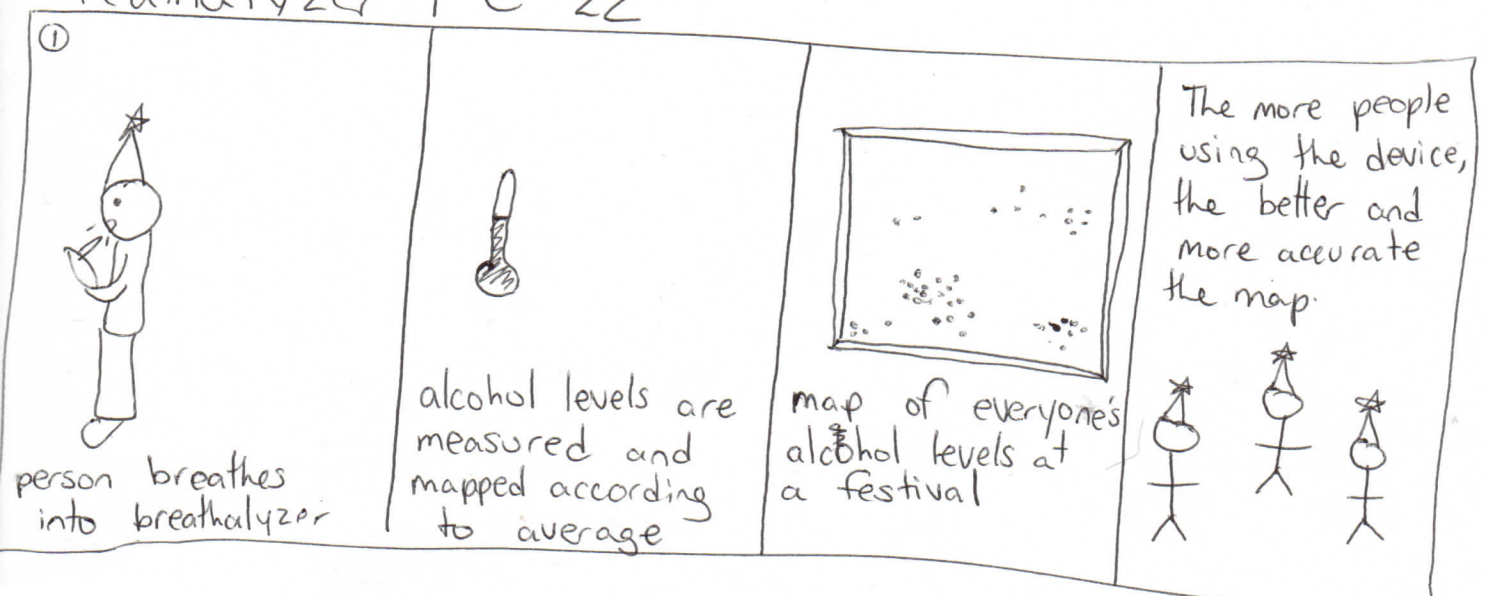 ①
person breathes
into breathalyzer
alcohol levels are
measured and
mapped according
to average
map of everyone's
alcohol levels at
a festival
The more people
using the device,
the better and
more accurate
the map.